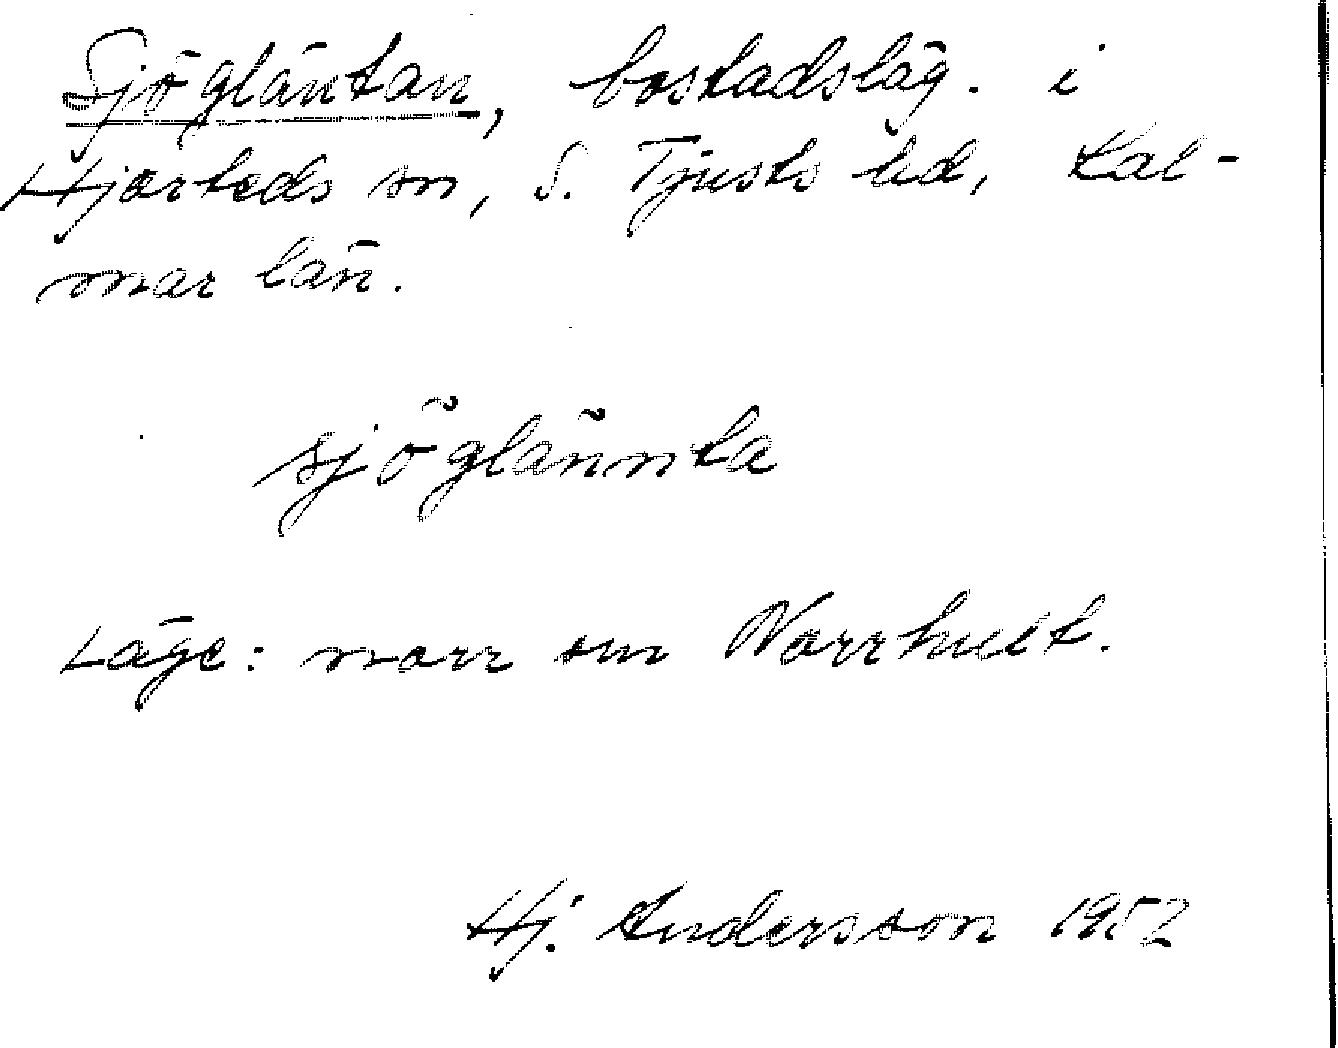 Sjögläntan, bostadsläg. i
Hjorteds sn, S. Tjusts hd, Kal-
mar län.
sjöglännta
Läge: norr om Norrhult.
Hj. Andersson 1952